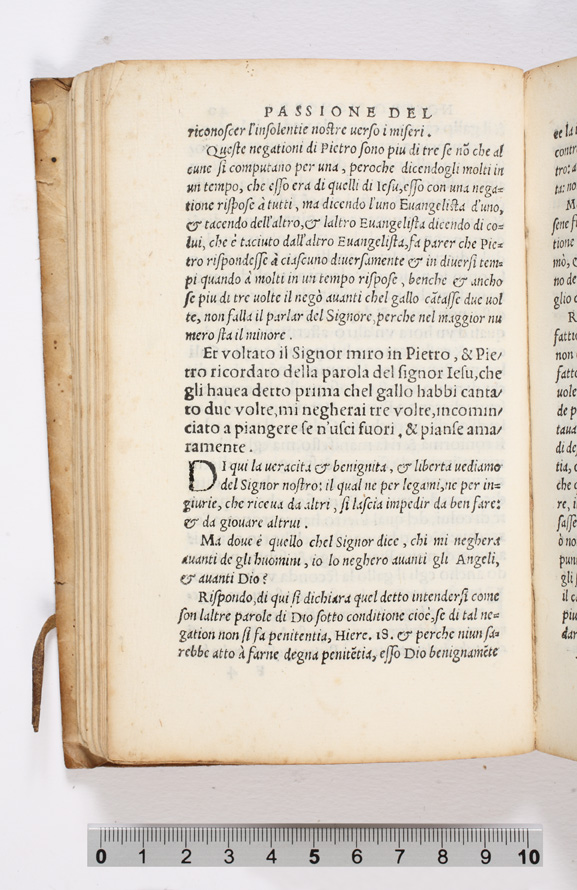 PASSIONE DEL
riconoscer l'insolentie nostre uerso i miseri.
Queste negationi di Pietro sono piu di tre se nõ che al
cune si computano per una, peroche dicendogli molti in
un tempo, che esso era di quelli di Iesu, esso con una nega=
tione rispose à tutti, ma dicendo l'uno Euangelista d'uno,
& tacendo dell'altro, & laltro Euangelista dicendo di co=
lui, che è taciuto dall'altro Euangelista, fa parer che Pie=
tro rispondesse à ciascuno diuersamente & in diuersi tem=
pi quando à molti in un tempo rispose, benche & ancho
se piu di tre uolte il negò auanti chel gallo cãtasse due uol
te, non falla il parlar del Signore, perche nel maggior nu
mero sta il minore.
Et voltato il Signor miro in Pietro, & Pie/
tro ricordato della parola del signor Iesu, che
gli hauea detto prima chel gallo habbi canta/
to due volte, mi negherai tre volte, incomin/
ciato a piangere se n'usci fuori, & pianse ama/
ramente.
DI qui la ueracita & benignita, & liberta uediamo
del Signor nostro: il qual ne per legami, ne per in=
giurie, che riceua da altri, si lascia impedir da ben fare:
& da giouare altrui.
Ma doue è quello chel Signor dice, chi mi neghera
auanti de gli huomini, io lo neghero auanti gli Angeli,
& auanti Dio?
Rispondo, di qui si dichiara quel detto intendersi come
son laltre parole di Dio sotto conditione cioè, se di tal ne=
gation non si fa penitentia, Hiere. 18. & perche niun sa=
rebbe atto à farne degna penitẽtia, esso Dio benignamẽte